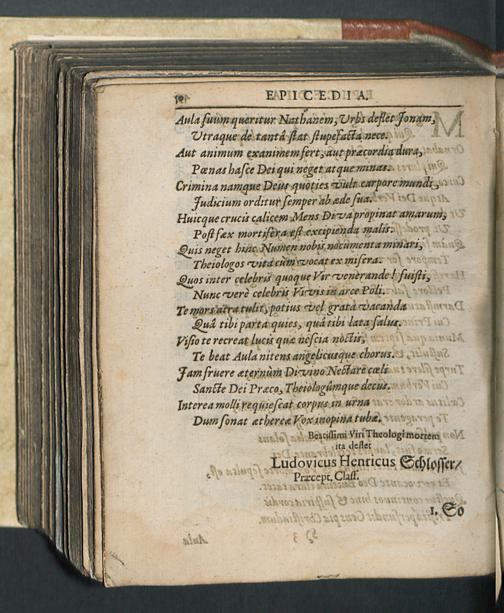 EPICEDIA.
Aula suum queritur Nathanem, Urbs deflet Jonam,
Utraque de tantâ stat stupefacta nece.
Aut animum exanimem fert, aut præcordia dura,
Pœnas hasce Dei qui neget atque minas.
Crimina namque Deus quoties vult carpere mundi,
Judicium orditur semper ab æde sua.
Huicque crucis calicem Mens Diva propinat amarum,
Post fæx mortifera est excipienda malis.
Quis neget hinc Numen nobis nocumenta minari,
Theologos vitâ cùm vocat ex misera.
Quos inter celebris quoque Vir venerande! fuisti,
Nunc verè celebris Vivis in arce Poli.
Te mors atra tulit, potius vel grata vacanda
Quâ tibi parta quies, quâ tibi lata salus.
Visio te recreat lucis quæ nescia noctis,
Te beat Aula nitens angelicusque chorus.
Jam fruere æternùm Divino Nectare cæli
Sancte Dei Præco, Theologûmque decus.
Interea molli requiescat corpus in urna
Dum sonat æthereæ Vox inopina tubæ.
Beatissimi Viri Theologi mortem
ita deflet
Ludovicus Henricus Schlosser/
Præcept. Class.
1. So